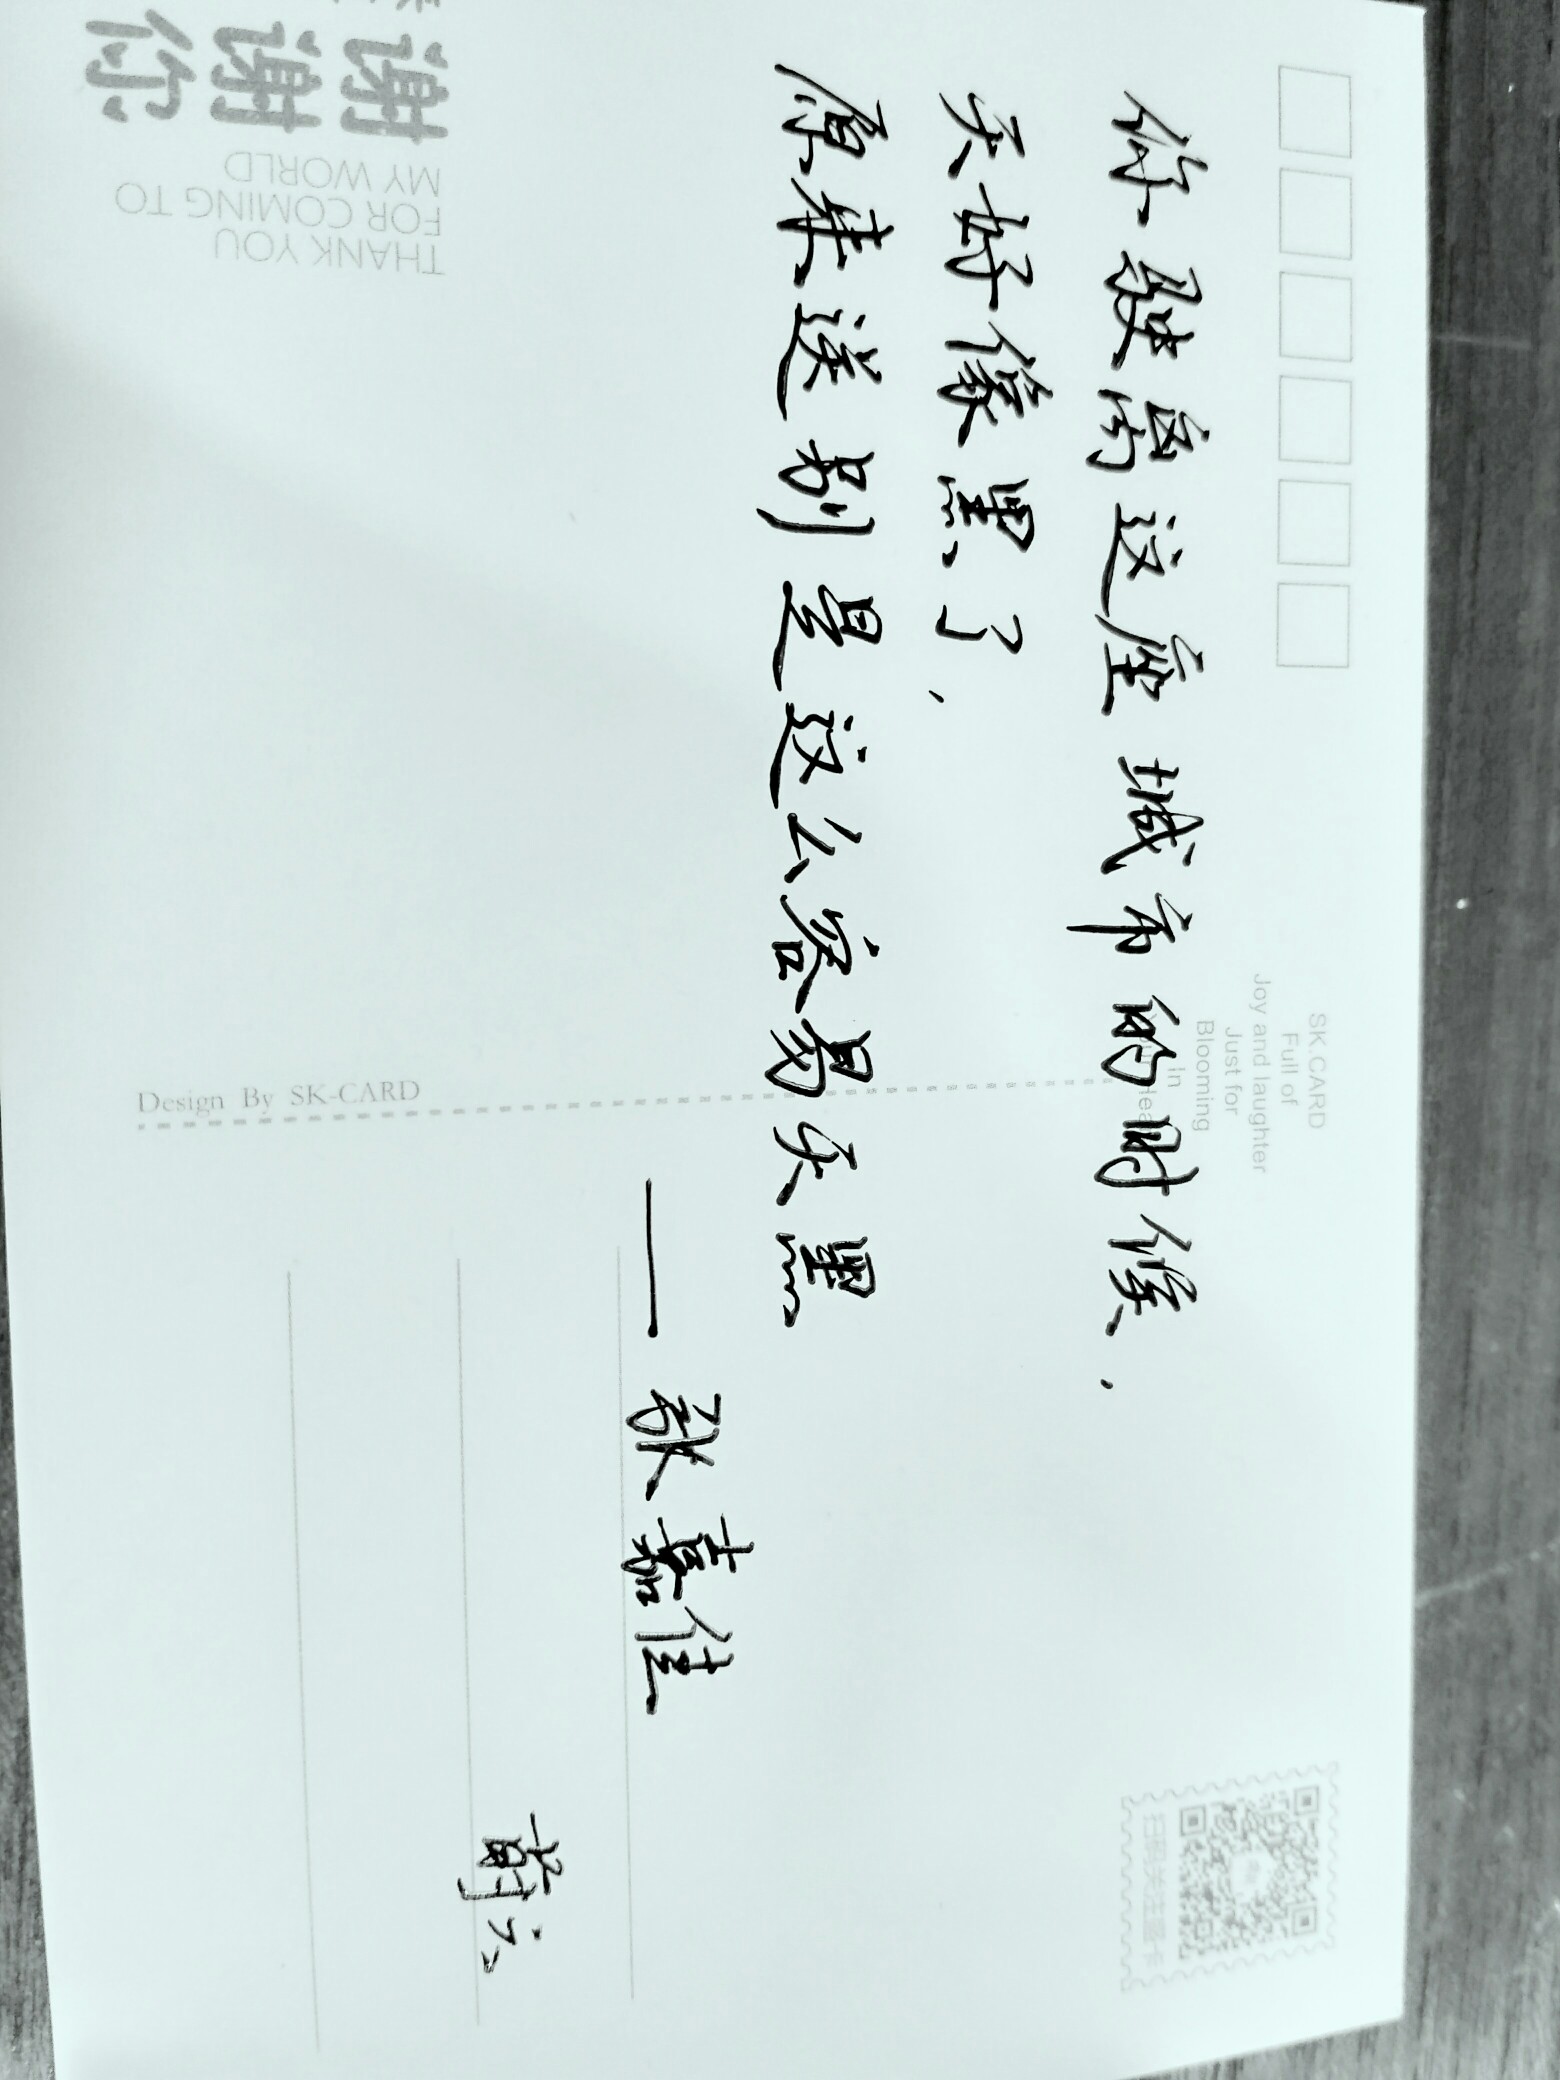 SK.CARD
Full of
Joy and laughter
Just for
Blooming
in
你驶离这座城市的时候,
天好像黑了,
原来送别是这么容易天黑
——张嘉佳
Design By SK-CARD
谢
谢
你
THANK YOU
FOR COMING TO
MY WORLD